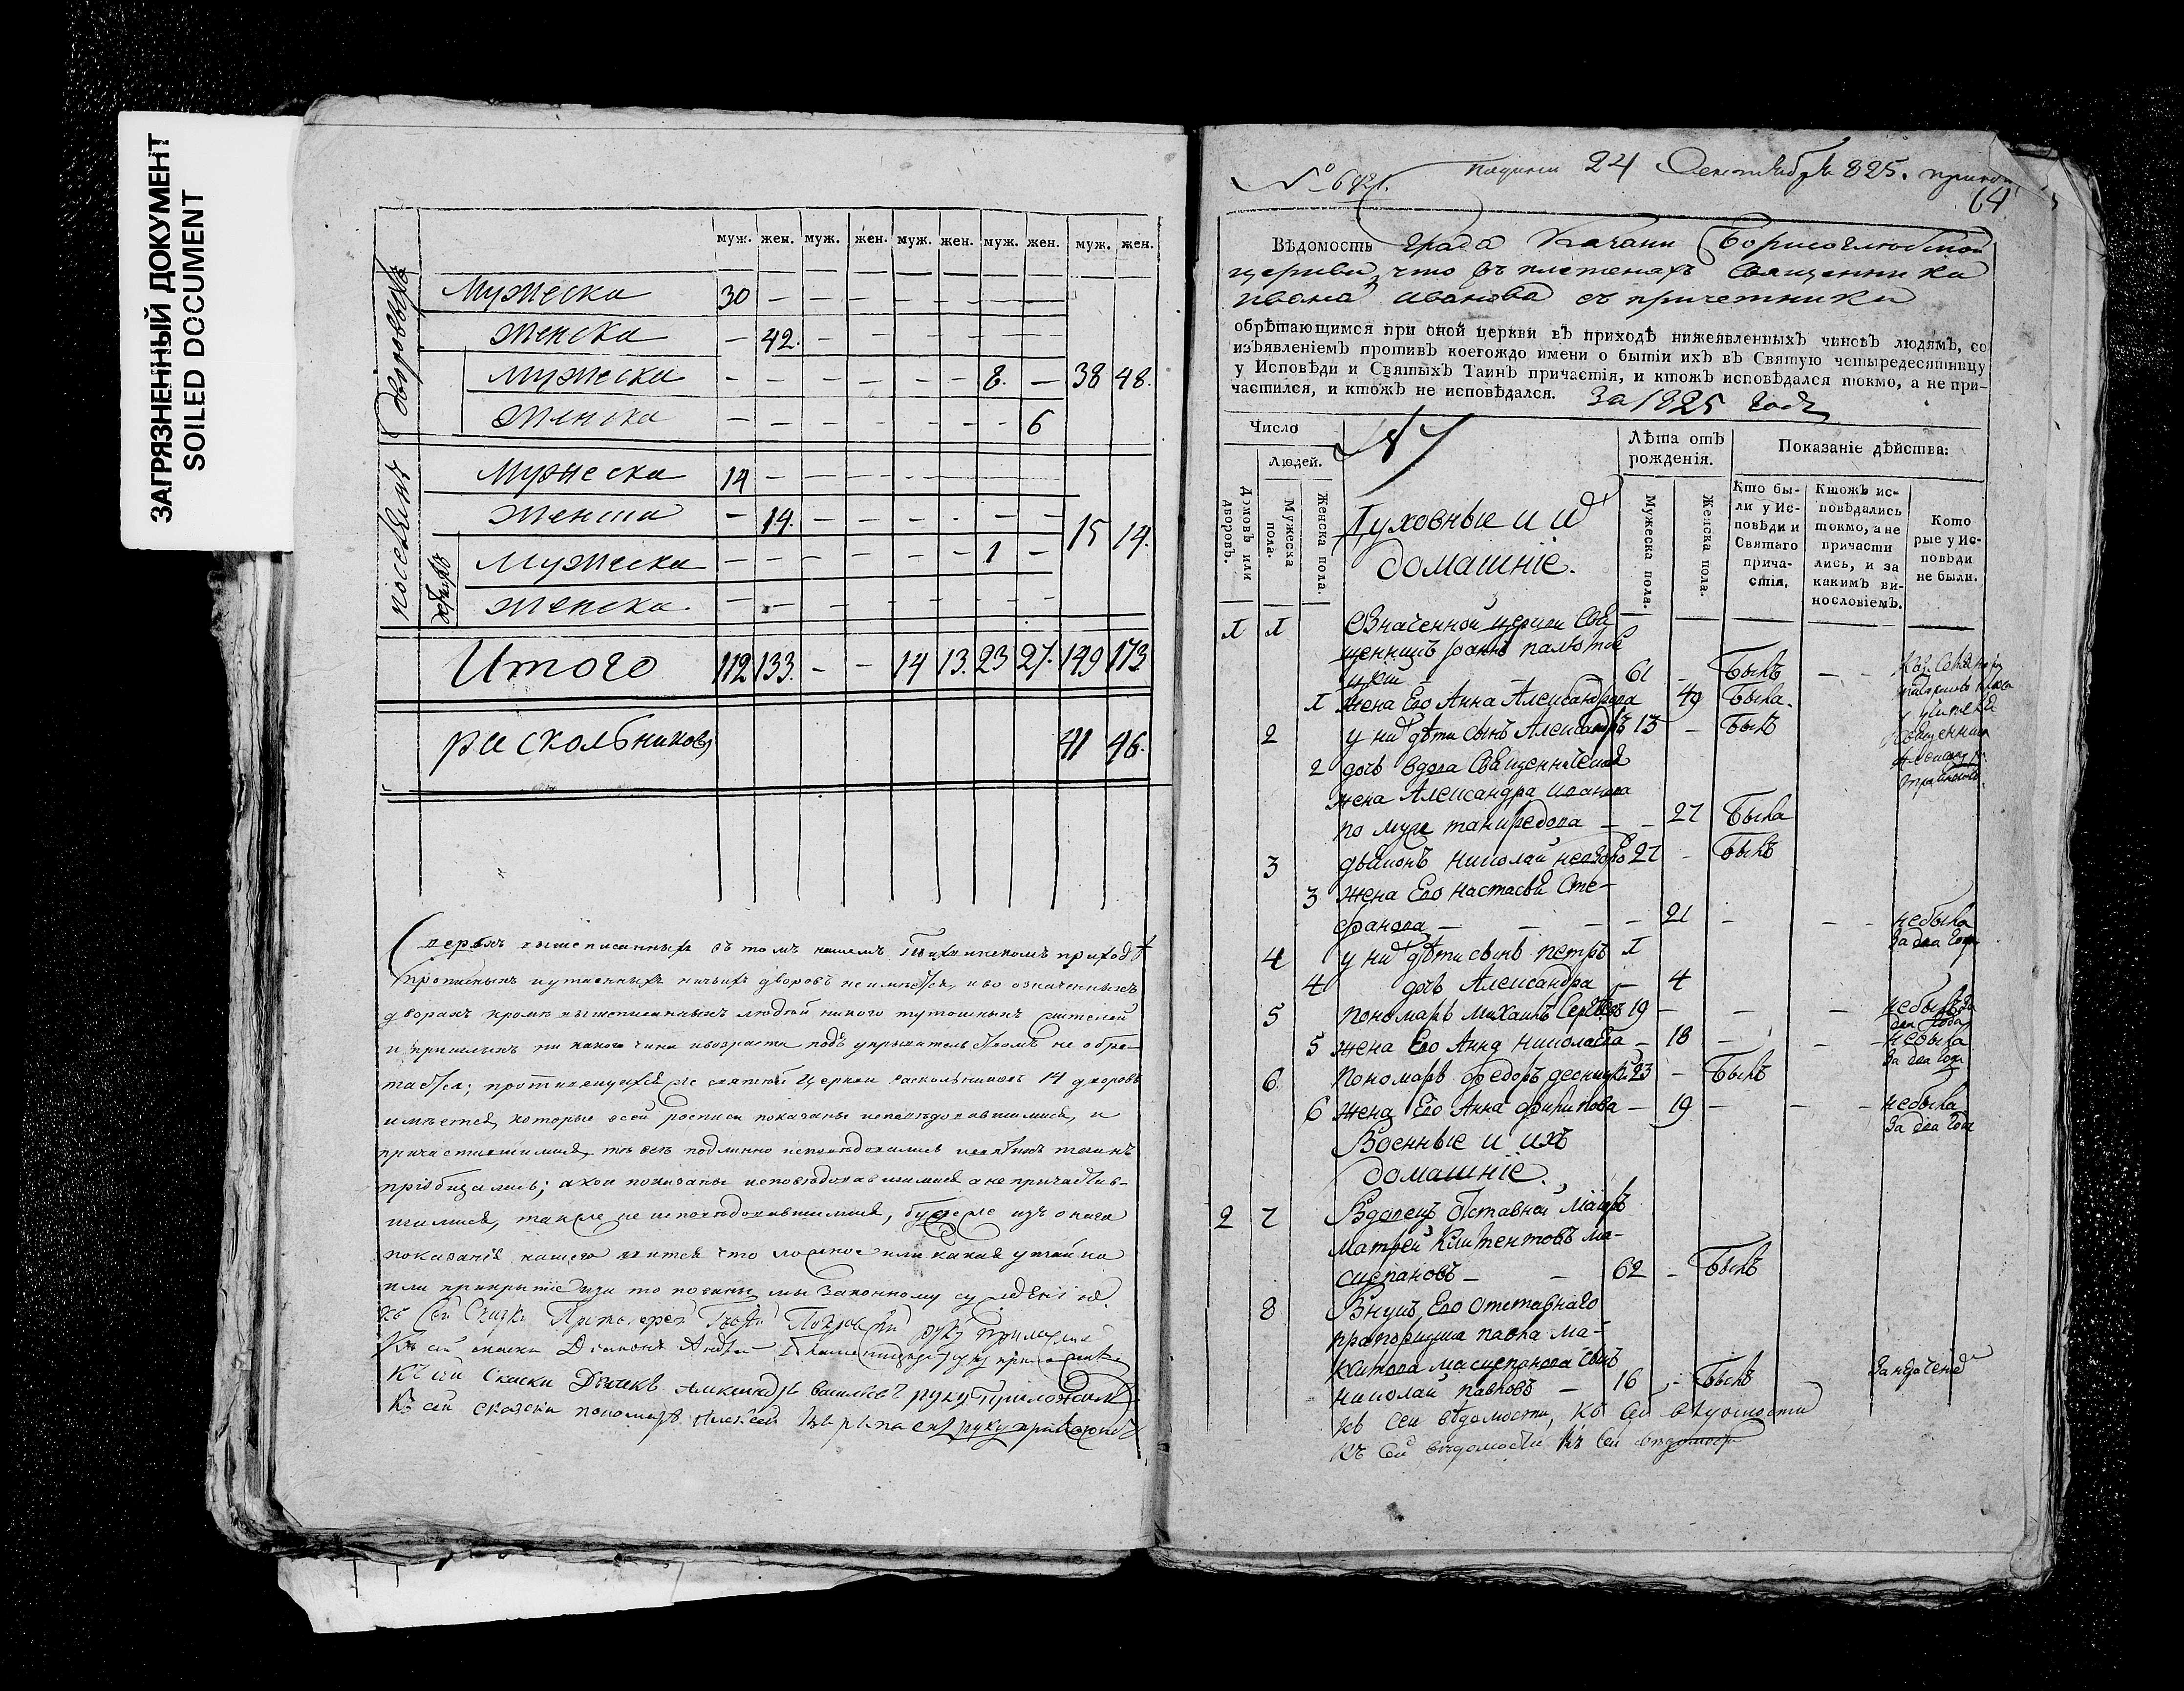 ЗАГРЯЗНЕННЫЙ ДОКУМЕНТ
SOILED DOCUMENT
муж. жен. муж. жен. муж. жен. муж. жен. муж. жен.
дворовыхъ
Мужеска 30 — — — — — — —
Женска — 42. — — — — — —
Мужеска — — — — — — 8. — 38 48.
Женска — — — — — — — 6
поселянъ
Мужеска 14 — — — — — — —
Женска — 14. — — — — — —
Мужеска — — — — — — 1 — 15 14.
Женска — — — — — — — —
Итого 112 133. — — 14 13. 23 27. 149 173
раскольниковъ 41 46.
вышеписанныхъ въ томъ нашемъ приходѣ
дворовъ неимѣтся, и во означенныхъ
дворахъ кромѣ вышеписанныхъ людей никого тутошныхъ жителей
и пришлыхъ ни какого чина и возраста подъ не обре-
таются; святой Церкви раскольниковъ 14 дворовъ
имѣется, которые в сей росписи показаны исповѣдовавшимися, и
причастившимися, тѣ всѣ подлинно исповѣдовались и святыхъ таинъ
пріобщались; а кои показаны исповѣдовавшимися а не причастив-
шимися, также не исповѣдовавшимися, буде же изъ онаго
показанія нашего явится что ложное или какая утайка
или прикрытіе за то повинны мы Законному сужденію.
Къ сей Скаски руку приложилъ
Къ сей скаски Діаконъ руку приложилъ
Къ сей Скаски Дьячекъ Александръ Васильевъ руку приложилъ
Къ сей скаски пономарь Алексей руку приложилъ
№ 6421. 24 Сентября 825.
64
Вѣдомость града Казани Борисоглебской
церкви, что въ плетеняхъ Священника
Ивана Иванова съ причетники
обрѣтающимся при оной церкви въ приходѣ нижеявленныхъ чиновъ людямъ, со
изъявленіемъ противъ коегождо имени о бытіи ихъ въ Святую четыредесятницу
у Исповѣди и Святыхъ Таинъ причастія, и ктожъ исповѣдался токмо, а не при-
частился, и ктожъ не исповѣдался. За 1825 годъ
Число
Людей.
Домовъ или дворовъ.
Мужеска пола.
Женска пола.
Лѣта отъ рожденія.
Мужеска пола.
Женска пола.
Показаніе дѣйства:
Кто бы-
ли у Ис-
повѣди и
Святаго
прича-
стія.
Ктожъ ис-
повѣдались
токмо, а не
причасти
лись, и за
какимъ ви-
нословіемъ.
Кото
рые у Ис-
повѣди
не были.
Духовные и ихъ
домашніе.
1 1 Означенной церкви Свя
щенникъ Іоаннъ
61 — Былъ — —
1 жена Его Анна Александрова 49 Была.
2 у нихъ дѣти сынъ Александръ 13 — Былъ
2 дочь вдова Священническая
жена Александра Иванова
по муже — — 27 Была
3 дьяконъ Николай 27 — Былъ
3 жена Его Настасья Сте-
фанова — — — — 21 — — — небыла
За два года
4 у нихъ дѣти сынъ Петръ 1
4 дочь Александра — 4
5 Пономарь Михаилъ Сергѣевъ 19 — — — небылъ За
два года
5 жена Его Анна Николаева — 18 — — — небыла
За два года
6 Пономарь Федоръ 23 — Былъ
6 жена Его Анна Филипова — 19 — — — небыла
За два года
Военные и ихъ
домашніе.
2 7 Вдовецъ Отставной
Матвей
— — 62 — Былъ
8 Внукъ Его Отставнаго
прапорщика Павла Ма-
сынъ
Николай Павловъ — 16 — Былъ
Къ сей вѣдомости, къ сей вѣдомости
Къ сей вѣдомости къ сей вѣдомости